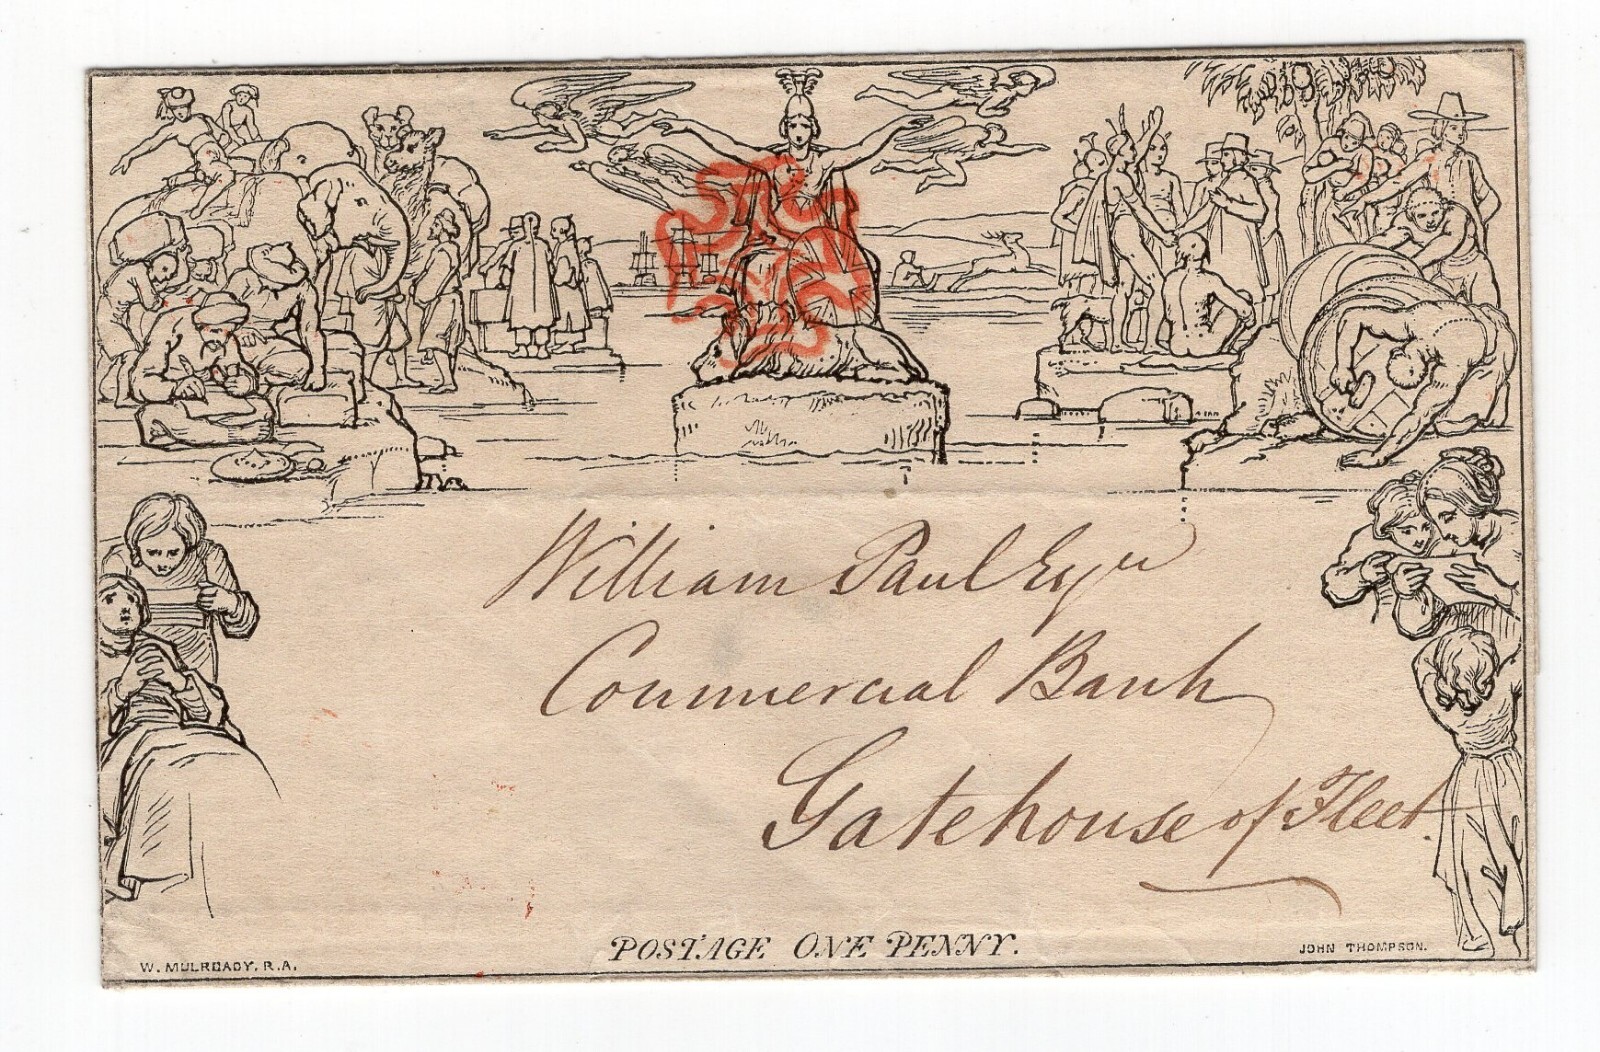 William Paul Esqre
Commercial Bank
Gatehouse of Fleet.
POSTAGE ONE PENNY.
W. MULREADY, R.A.
JOHN THOMPSON.